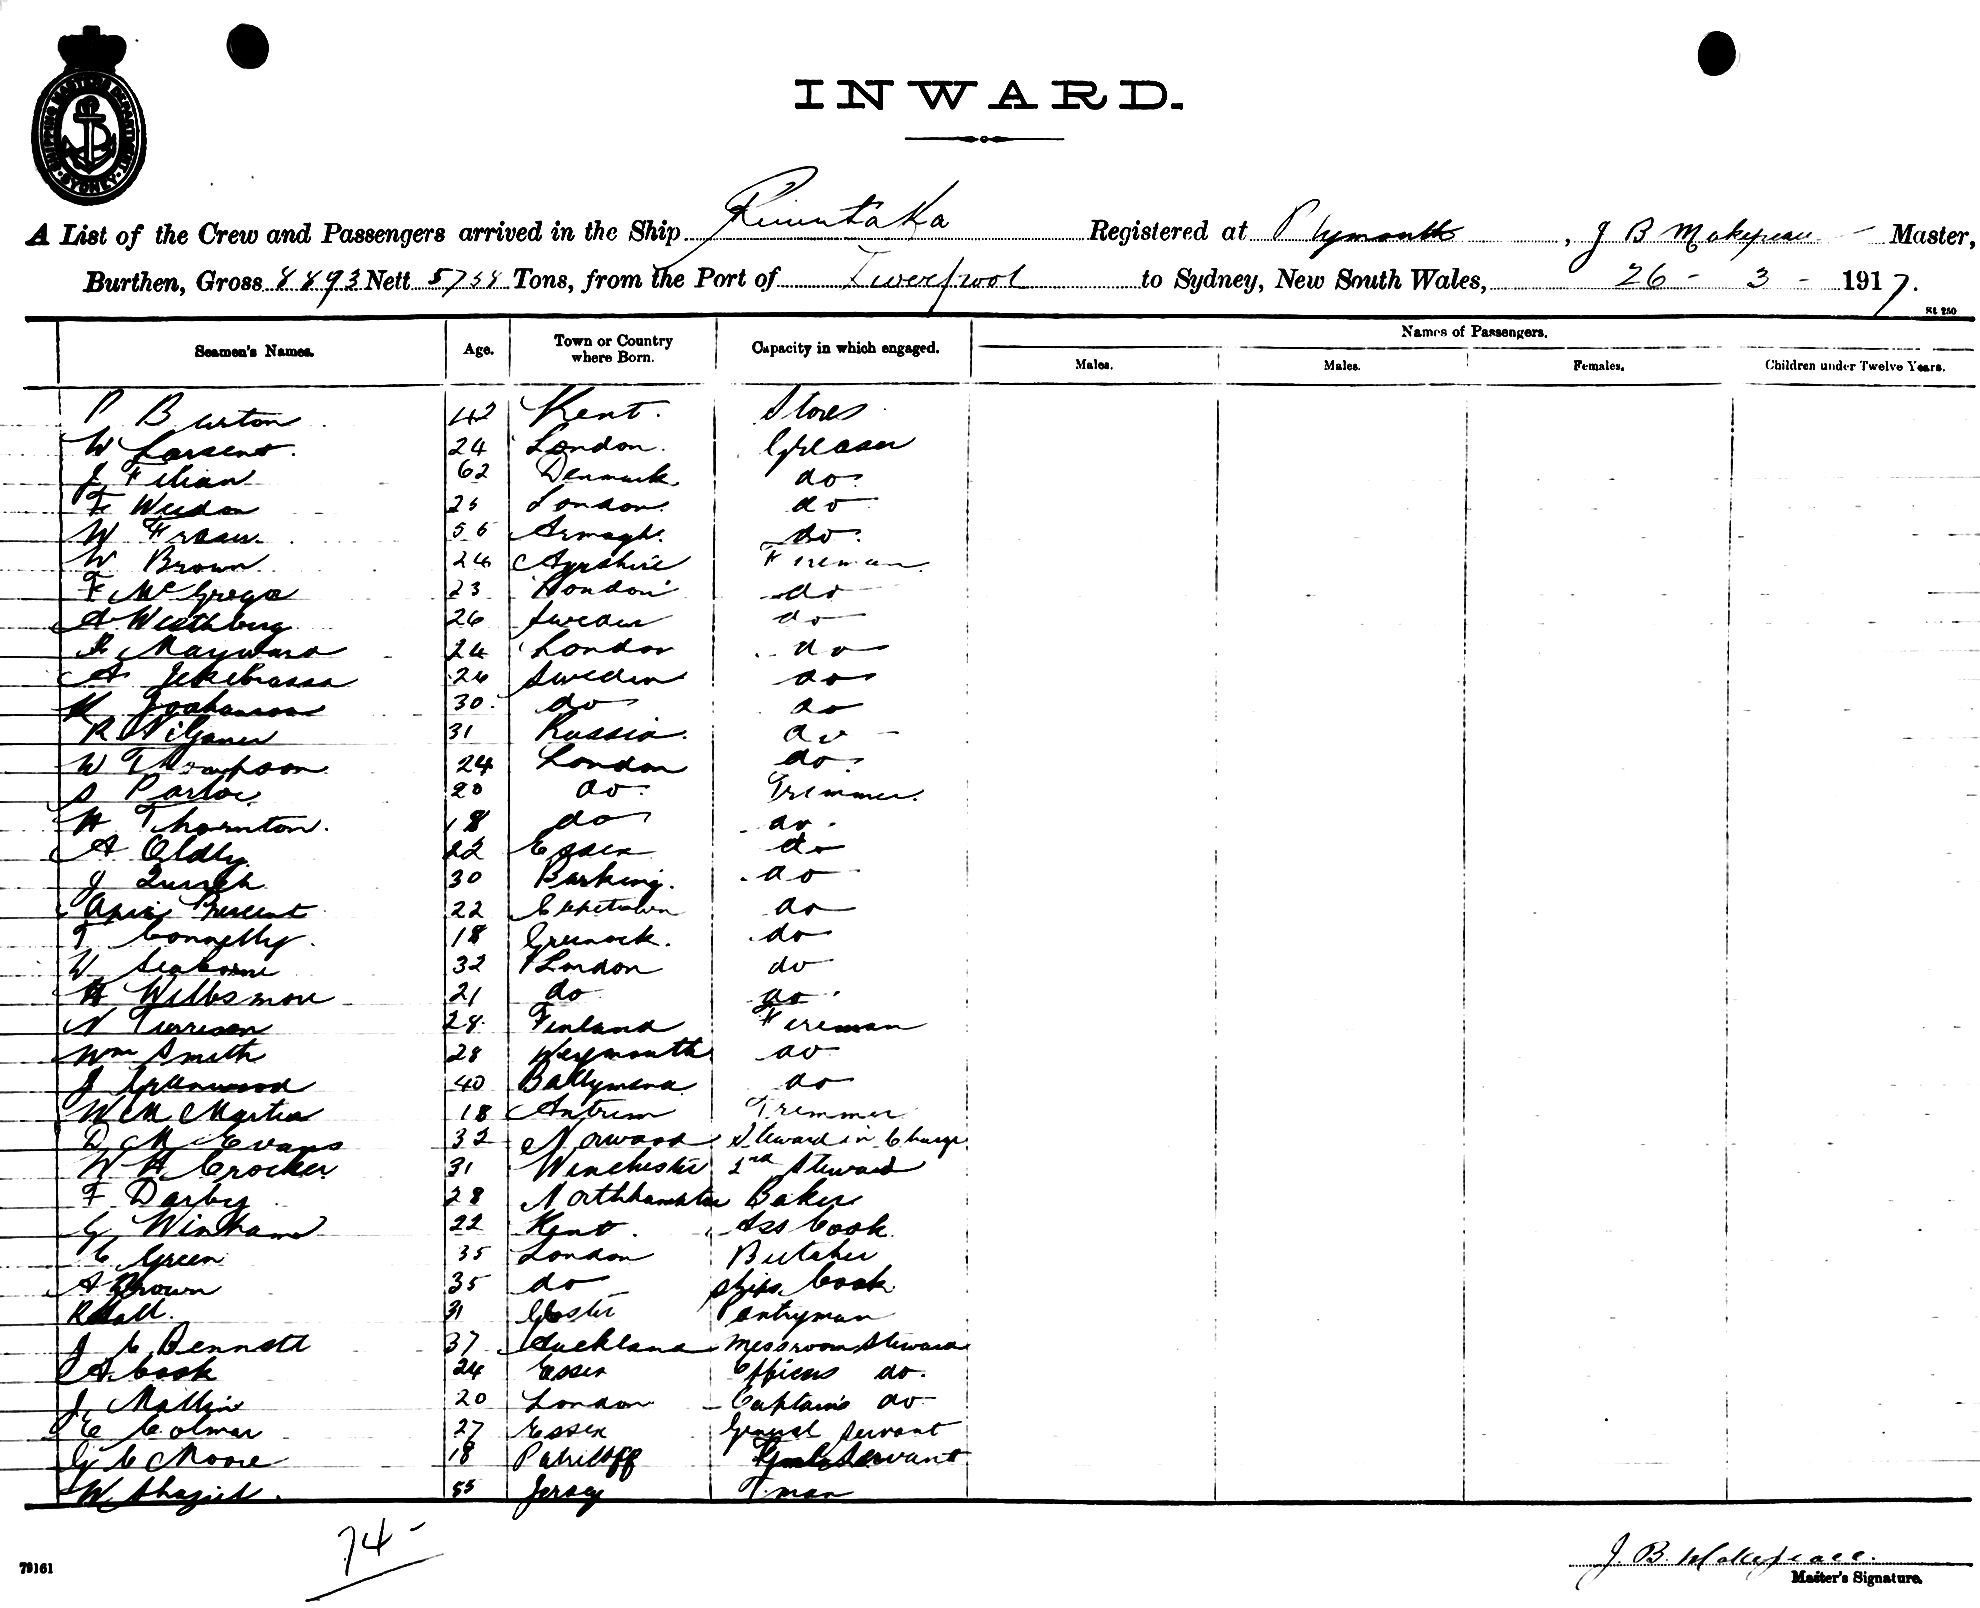 SHIPPING MASTERS DEPARTMENT. SYDNEY
INWARD.
A List of the Crew and Passengers arrived in the Ship Rimutaka Registered at Plymouth, J B Makepeace - Master,
Burthen, Gross 8893 Nett 5758 Tons, from the Port of Liverpool to Sydney, New South Wales, 26 - 3 - 1917.
St 250
Seamen's Names. Age. Town or Country where Born. Capacity in which engaged. Names of Passengers.
Males. Males. Females. Children under Twelve Years.
P Burton 42 Kent. Stores
W Larsens. 24 London. Greaser
J Filian 62 Denmark. do.
F Weedon 25 London. do
W Fraser. 56 Armagh. do.
W Brown. 24 Ayrshire Fireman.
F McGrega 23 London do
A Westhberg 26 Sweden do
F Mayward 24 London do
A 24 Sweden do
K Joahanson 30. do do
R 31 Russia. do -
W Thompson 24 London do.
S Parloe. 20 do. Trimmer.
H Thornton. 18 do do.
A Oldly. 22 Essex do
J 30 Barking. do
22 Capetown do
T Connelly. 18 Greenock. do
W Seaborne 32 London do
H Willsmore 21 do do.
N 28. Finland Fireman
Wm Smith 28 Weymouth do
J Greenwood 40 Ballymena do
W M Martin 18 Antrim Trimmer
D M Evans 32 Norwood Steward in Charge
W H Crocker. 31 Winchester 2nd Steward
F Darby 28 Northhampton Baker
G Winkham 22 Kent. Ass Cook
C Green 35 London Butcher
A Brown 35 do Ships Cook
R Hall. 31 Gloster Pantryman
J C Bennett 37 Auckland Messroom Steward
A. Cook 24 Essex Officers do.
J. Mallin 20 London Captains do
E Colmer 27 Essex General Servant
G C Moore 18 Servant
W 55 Jersey T.man
74 -
79161
J. B. Makepeace.
Master's Signature.